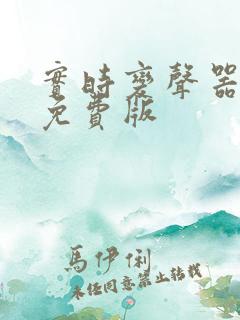 實時變聲器
免費版
馬伊俐
未經同意禁止轉載